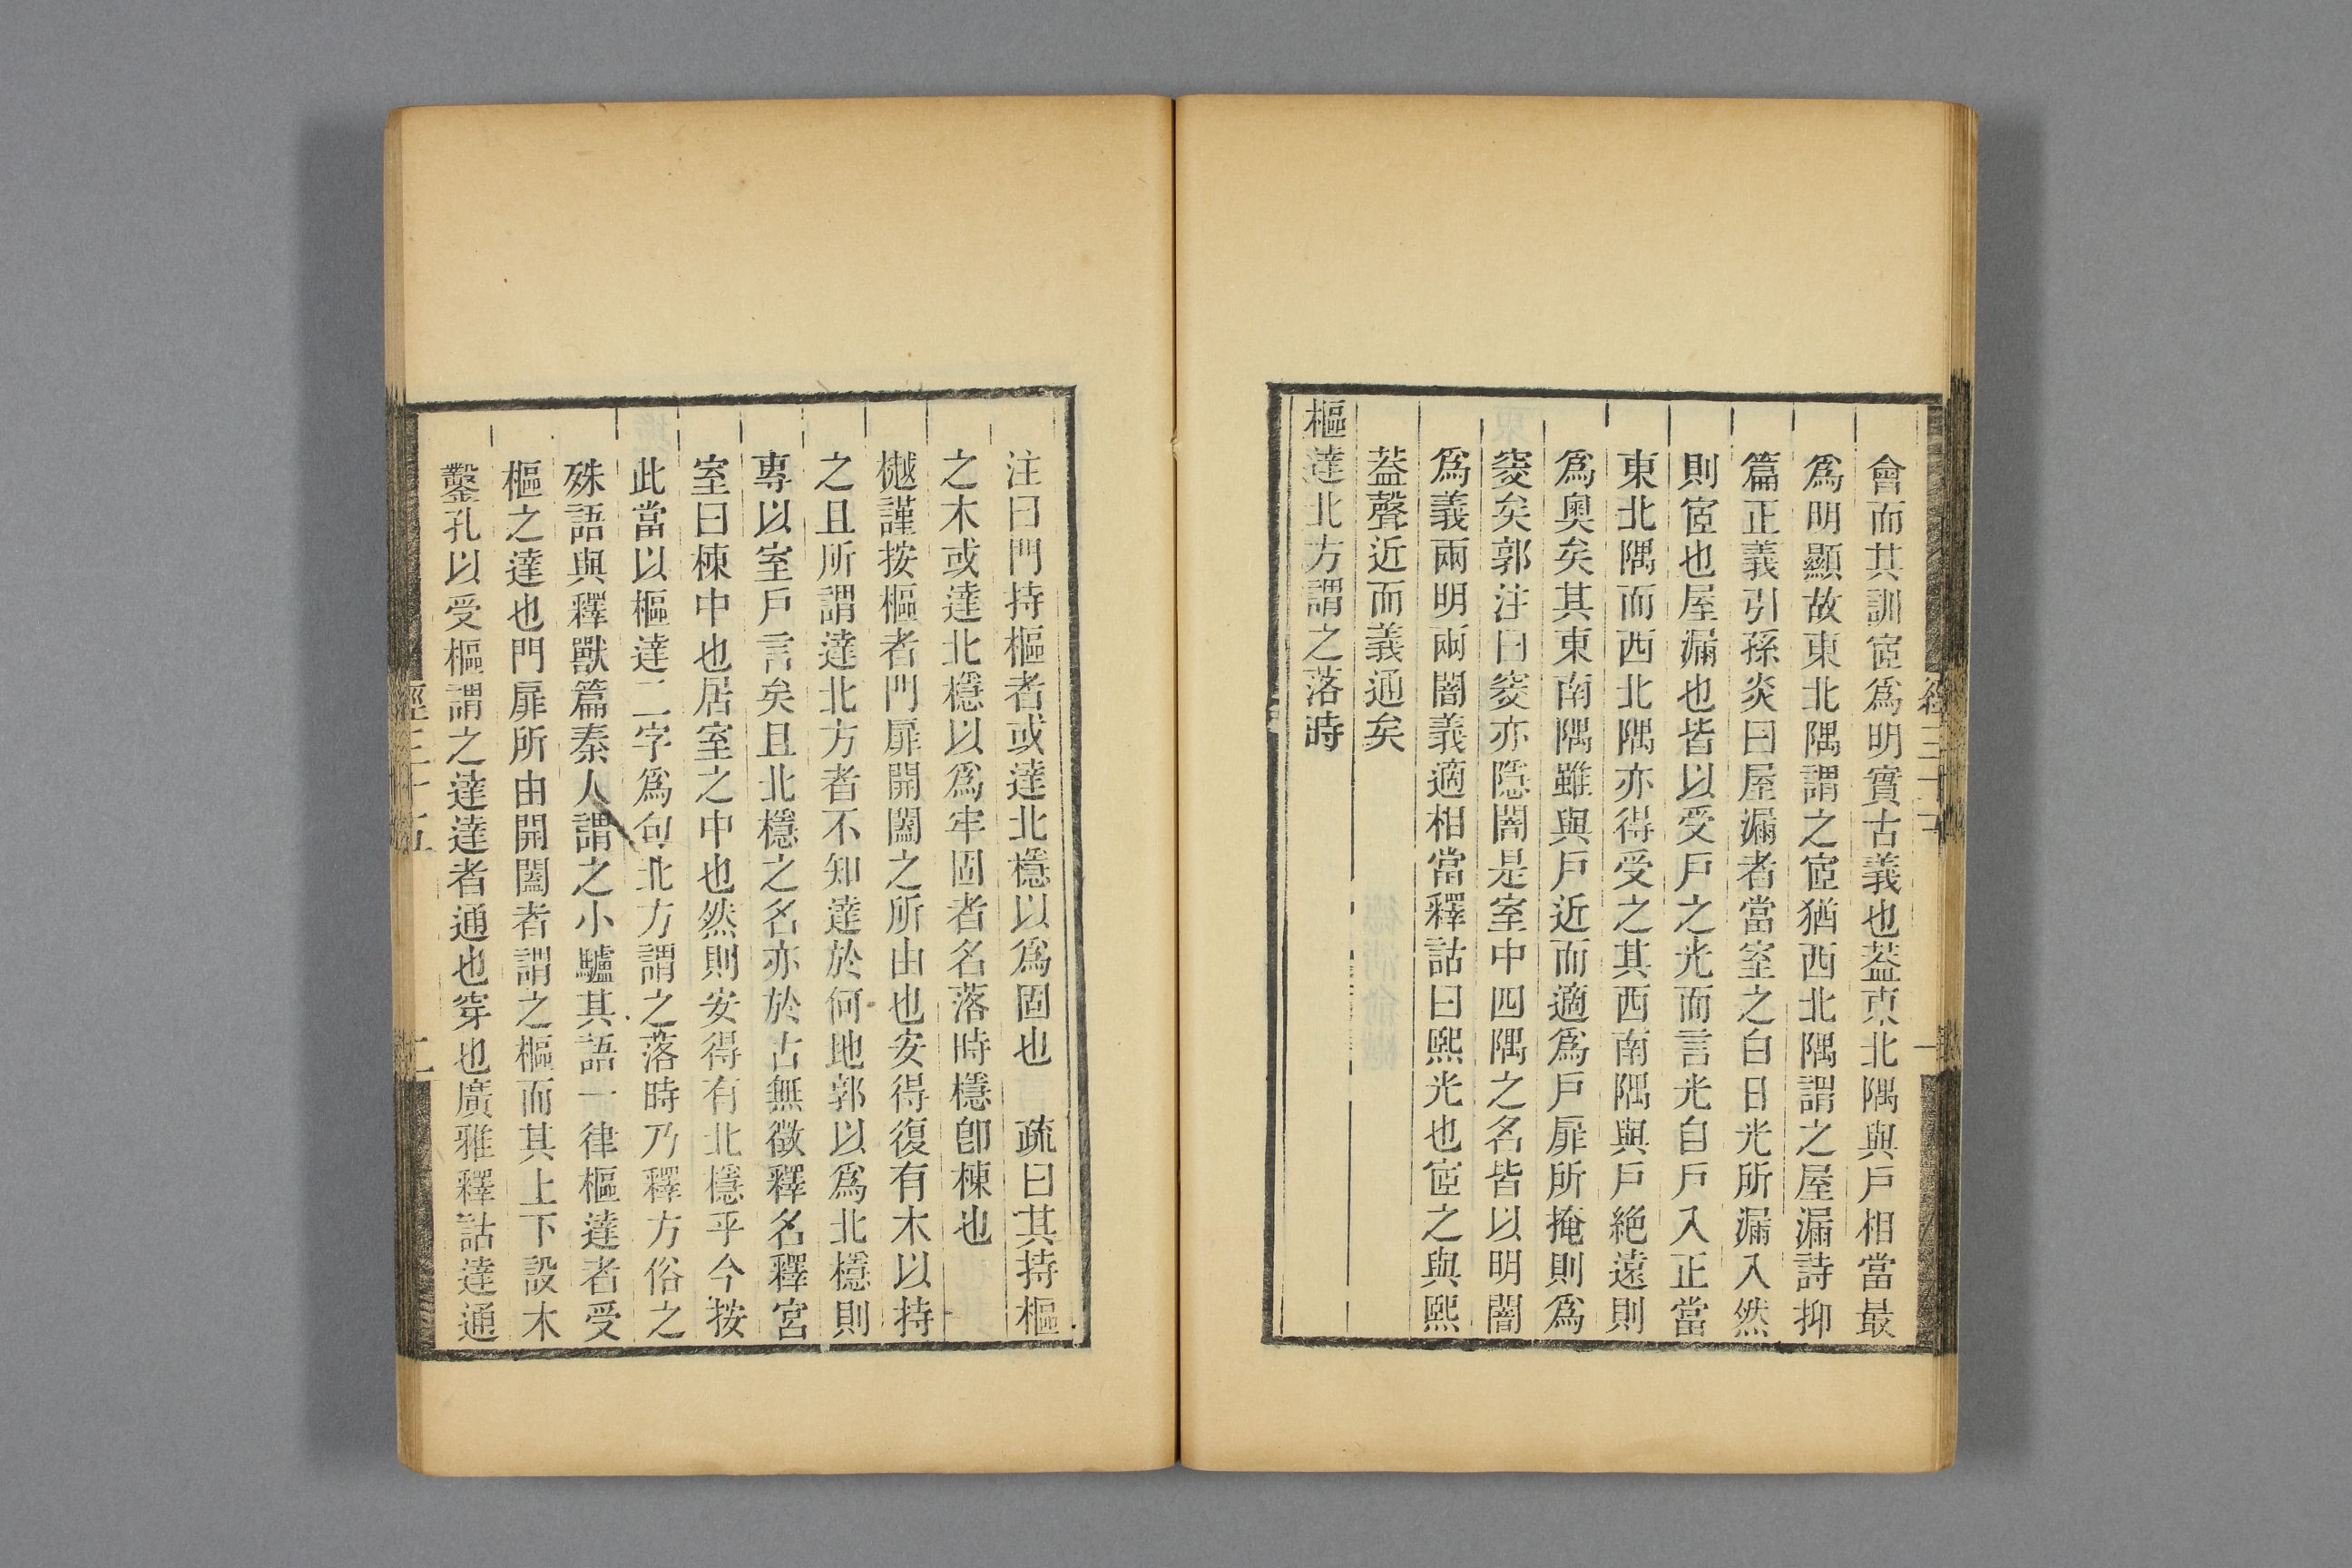 會而其訓宧爲明實古義也葢東北隅與戶相當最
爲明顯故東北隅謂之宧猶西北隅謂之屋漏詩抑
篇正義引孫炎曰屋漏者當室之白日光所漏入然
則宧也屋漏也皆以受戶之光而言光自戶入正當
東北隅而西北隅亦得受之其西南隅與戶絶遠則
爲奧矣其東南隅雖與戶近而適爲戶扉所掩則爲
窔矣郭注曰窔亦隱闇是室中四隅之名皆以明闇
爲義兩明兩闇義適相當釋詁曰熙光也宧之與熙
葢聲近而義通矣
樞達北方謂之落時
注曰門持樞者或達北檼以爲固也　疏曰其持樞
之木或達北檼以爲牢固者名落時檼卽棟也
樾謹按樞者門扉開闔之所由也安得復有木以持
之且所謂達北方者不知達於何地郭以爲北檼則
專以室戶言矣且北檼之名亦於古無徵釋名釋宮
室曰棟中也居室之中也然則安得有北檼乎今按
此當以樞達二字爲句北方謂之落時乃釋方俗之
殊語與釋獸篇秦人謂之小驢其語一律樞達者受
樞之達也門扉所由開闔者謂之樞而其上下設木
鑿孔以受樞謂之達達者通也穿也廣雅釋詁達通